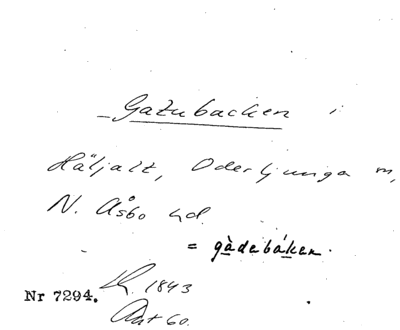 Gatubacken i
Häljalt, Oderljunga m,
N. Åsbo hd.
= gàdebáken.
1843
Nr 7294.
60.